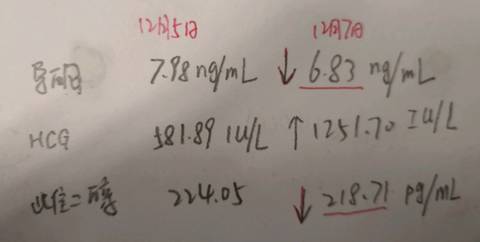 12月5日 12月7日
孕酮 7.98 ng/mL ↓ 6.83 ng/mL
HCG 581.89 IU/L ↑ 1251.70 IU/L
雌二醇 224.05 ↓ 218.71 pg/mL